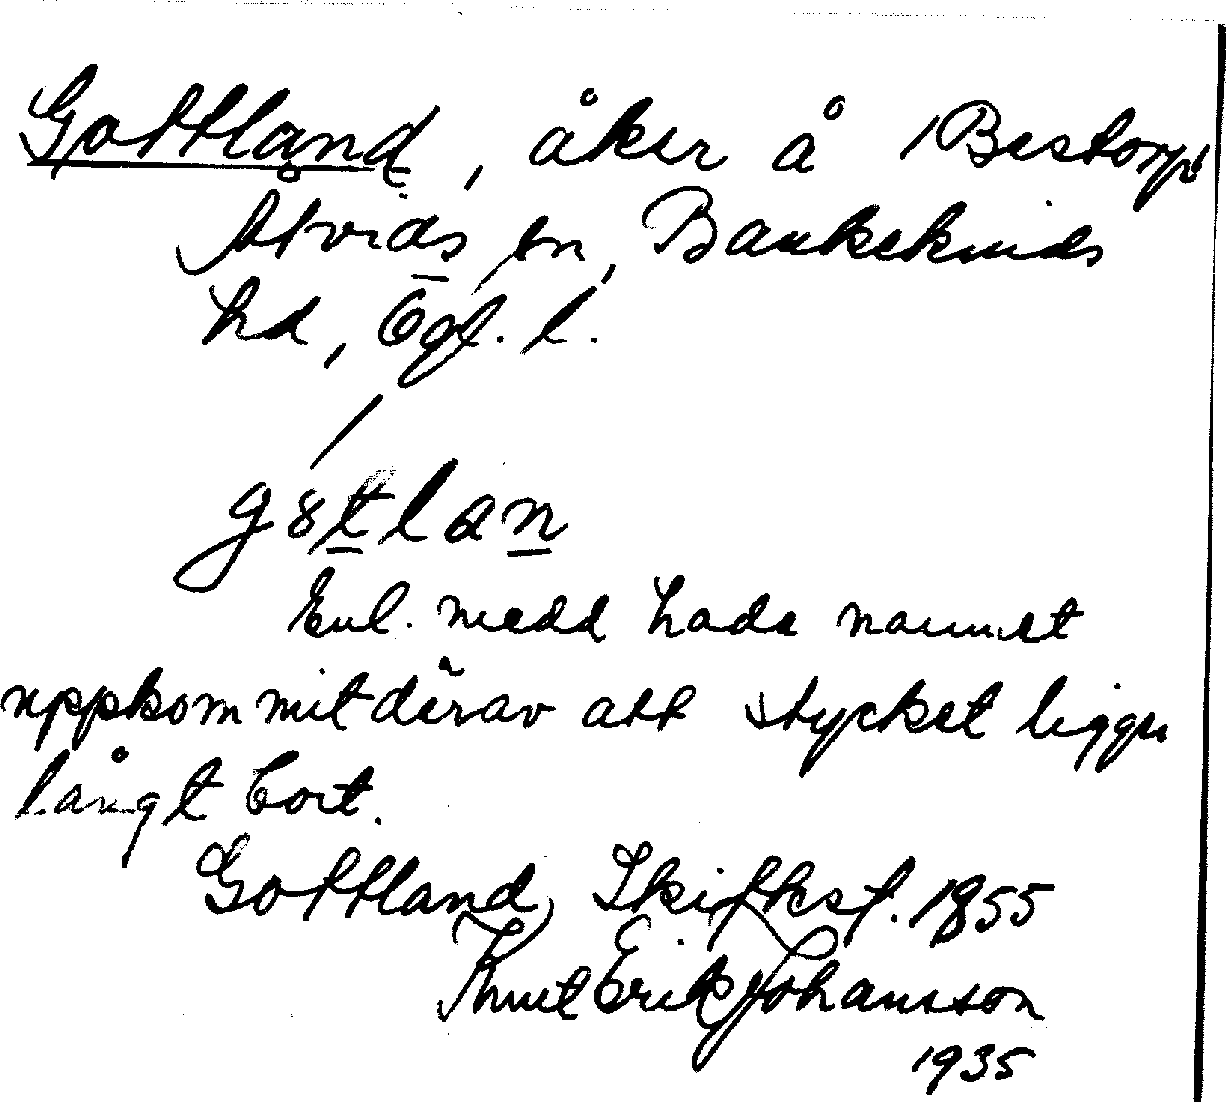 Gottland, åker å Bestorp
Åtvids sn, Bankekinds
hd, Ögl. l.
g8tlan
Enl. medd hade namnet
uppkommit därav att stycket ligger
långt bort.
Gottland, Skifksf. 1855
Knut Erik Johansson
1935